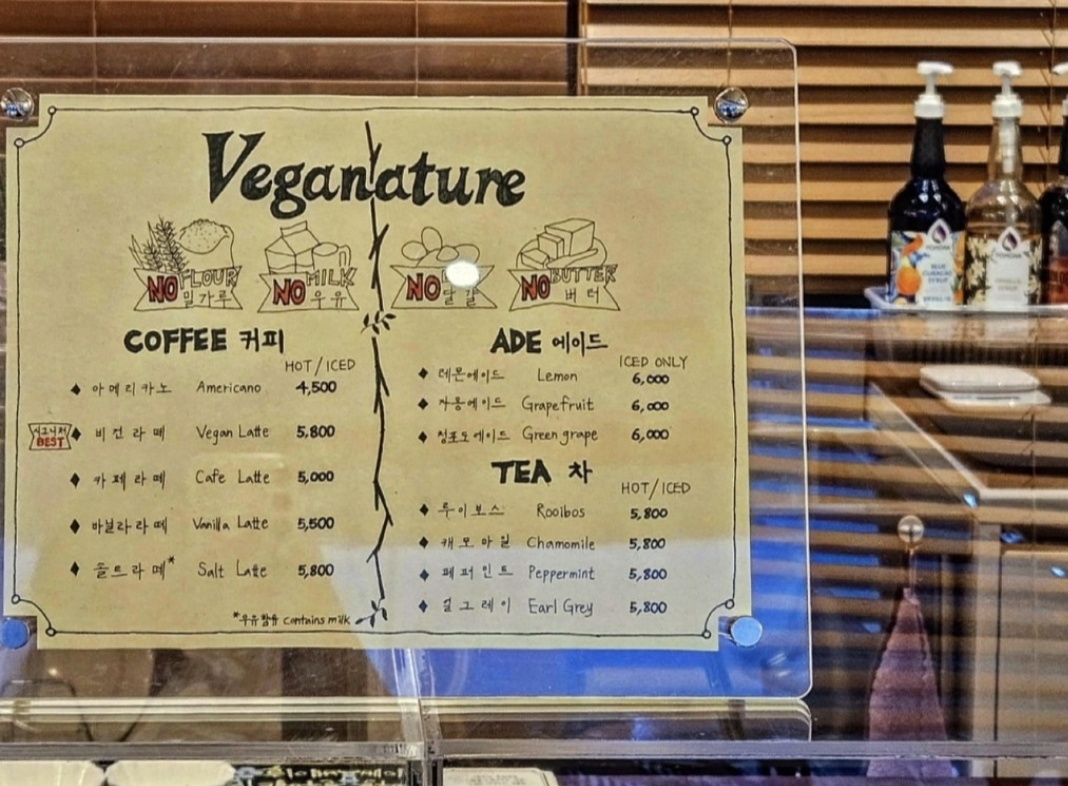 Veganature
NO FLOUR 밀가루
NO MILK 우유
NO 달걀
NO BUTTER 버터
COFFEE 커피
HOT/ICED
아메리카노 Americano 4,500
시그니처 BEST
비건라떼 Vegan Latte 5,800
카페라떼 Cafe Latte 5,000
바닐라라떼 Vanilla Latte 5,500
솔트라떼* Salt Latte 5,800
*우유함유 contains milk
ADE 에이드
ICED ONLY
레몬에이드 Lemon 6,000
자몽에이드 Grapefruit 6,000
청포도에이드 Green grape 6,000
TEA 차
HOT/ICED
루이보스 Rooibos 5,800
캐모마일 Chamomile 5,800
페퍼민트 Peppermint 5,800
얼그레이 Earl Grey 5,800
BLUE
CURACAO
SYRUP